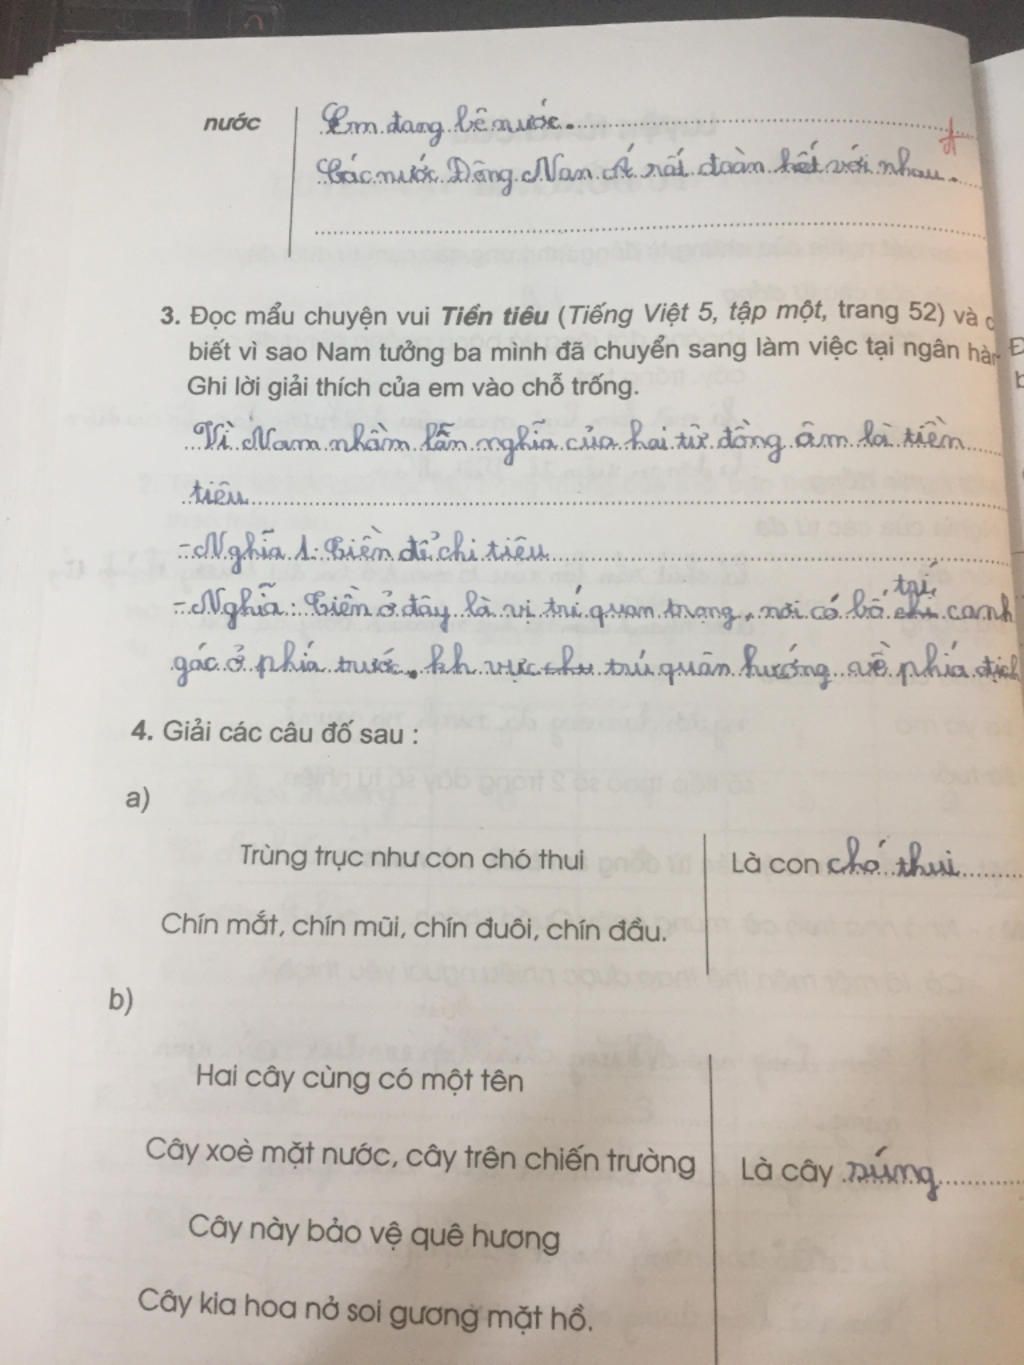 nước
Em đang bê nước.
Các nước Đông Nan Á rất đoàn hết với nhau.
3. Đọc mẩu chuyện vui Tiền tiêu (Tiếng Việt 5, tập một, trang 52) và c
biết vì sao Nam tưởng ba mình đã chuyển sang làm việc tại ngân hàn
Ghi lời giải thích của em vào chỗ trống.
Vì Nam nhầm lẫn nghĩa của hai từ đồng âm là tiền
tiêu
- Nghĩa 1: Tiền để chi tiêu
- Nghĩa: Tiền ở đây là vị trí quan trọng, nơi có bố trí canh
gác ở phía trước. kh vực trú quân hướng về phía địch
4. Giải các câu đố sau :
a)
Trùng trục như con chó thui
Là con chó thui
Chín mắt, chín mũi, chín đuôi, chín đầu.
b)
Hai cây cùng có một tên
Cây xoè mặt nước, cây trên chiến trường
Là cây súng
Cây này bảo vệ quê hương
Cây kia hoa nở soi gương mặt hồ.